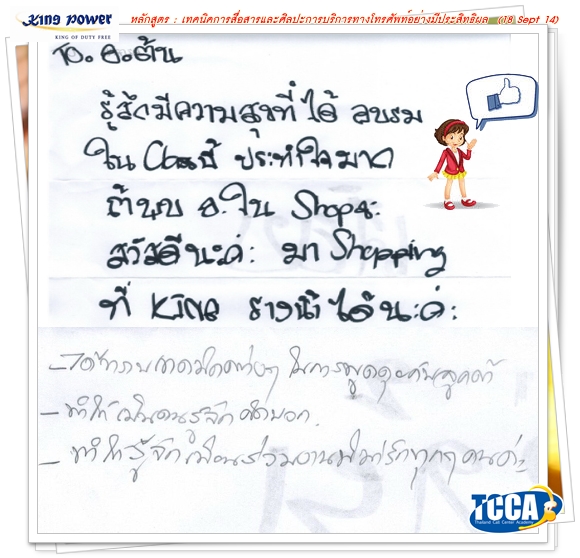 King Power
KING OF DUTY FREE
หลักสูตร : เทคนิคการสื่อสารและศิลปะการบริการทางโทรศัพท์อย่างมีประสิทธิผล (18 Sept 14)
To. อ.ต้น
รู้สึกมีความสุขที่ได้ อบรม
ใน Classนี้ ประทับใจมาก
ถ้าพบ อ.ใน Shopจะ
สวัสดีนะค่ะ มา Shopping
ที่ King รางน้ำ ได้นะค่ะ
- ได้ทราบ ต่างๆ ในการพูดคุยกับลูกค้า
- ทำให้เป็นคนรู้จัก
- ทำให้รู้จักเพื่อนร่วมงาน ทุกๆ คนค่ะ
TCCA
Thailand Call Center Academy